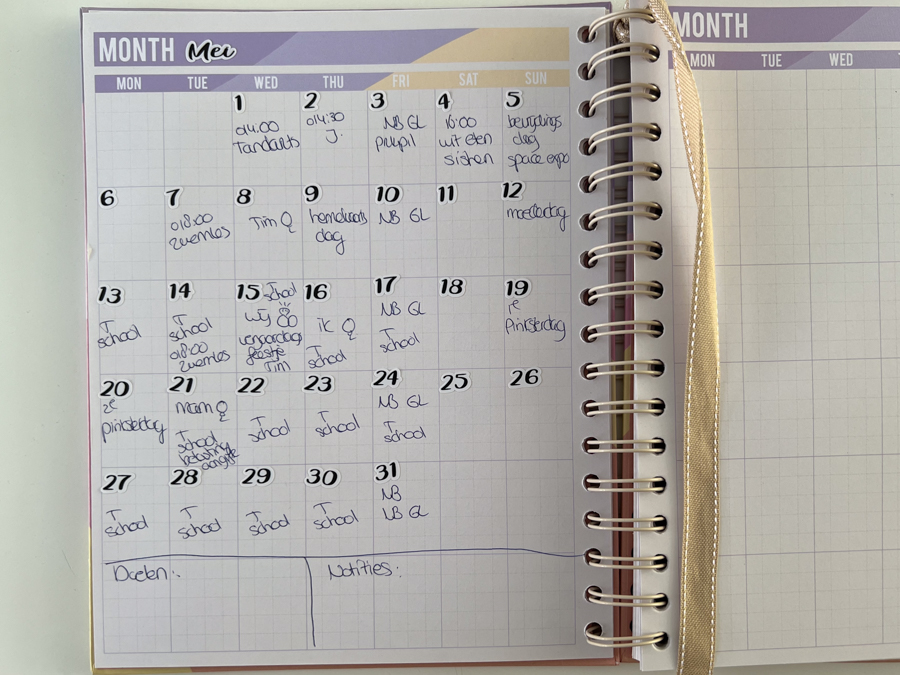 MONTH Mei
MON TUE WED THU FRI SAT SUN
1 2 3 4 5
014:00
Tandarts
014:30
J.
NB GL
16:00
uit eten
bevrijdings
dag
space expo
6 7 8 9 10 11 12
018:00
zwemles
Tim
hemelvaarts
dag
NB GL
moederdag
13 14 15 16 17 18 19
T
school
T
school
018:00
zwemles
School
wij
feestje
Tim
ik
T
school
NB GL
T
school
1e
Pinksterdag
20 21 22 23 24 25 26
2e
pinksterdag
mam
T
school
belasting
aangifte
T
school
T
school
NB GL
T
school
27 28 29 30 31
T
school
T
school
T
school
T
school
NB
LB GL
Doelen:
Notities:
MONTH
MON TUE WED